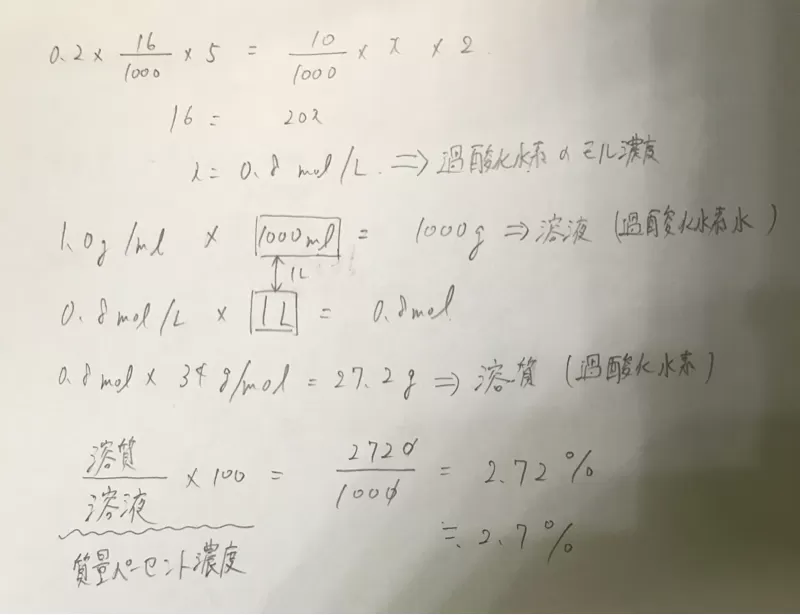 0.2 × 16/1000 × 5 = 10/1000 × x × 2
16 = 20x
x = 0.8 mol/L. ⇒ 過酸化水素のモル濃度
1.0g/ml × 1000ml = 1000g ⇒ 溶液 (過酸化水素水)
↕ 1L
0.8mol/L × 1L = 0.8mol
0.8mol × 34g/mol = 27.2g ⇒ 溶質 (過酸化水素)
溶質/溶液 × 100 = 2720/1000 = 2.72%
≒ 2.7%
質量パーセント濃度